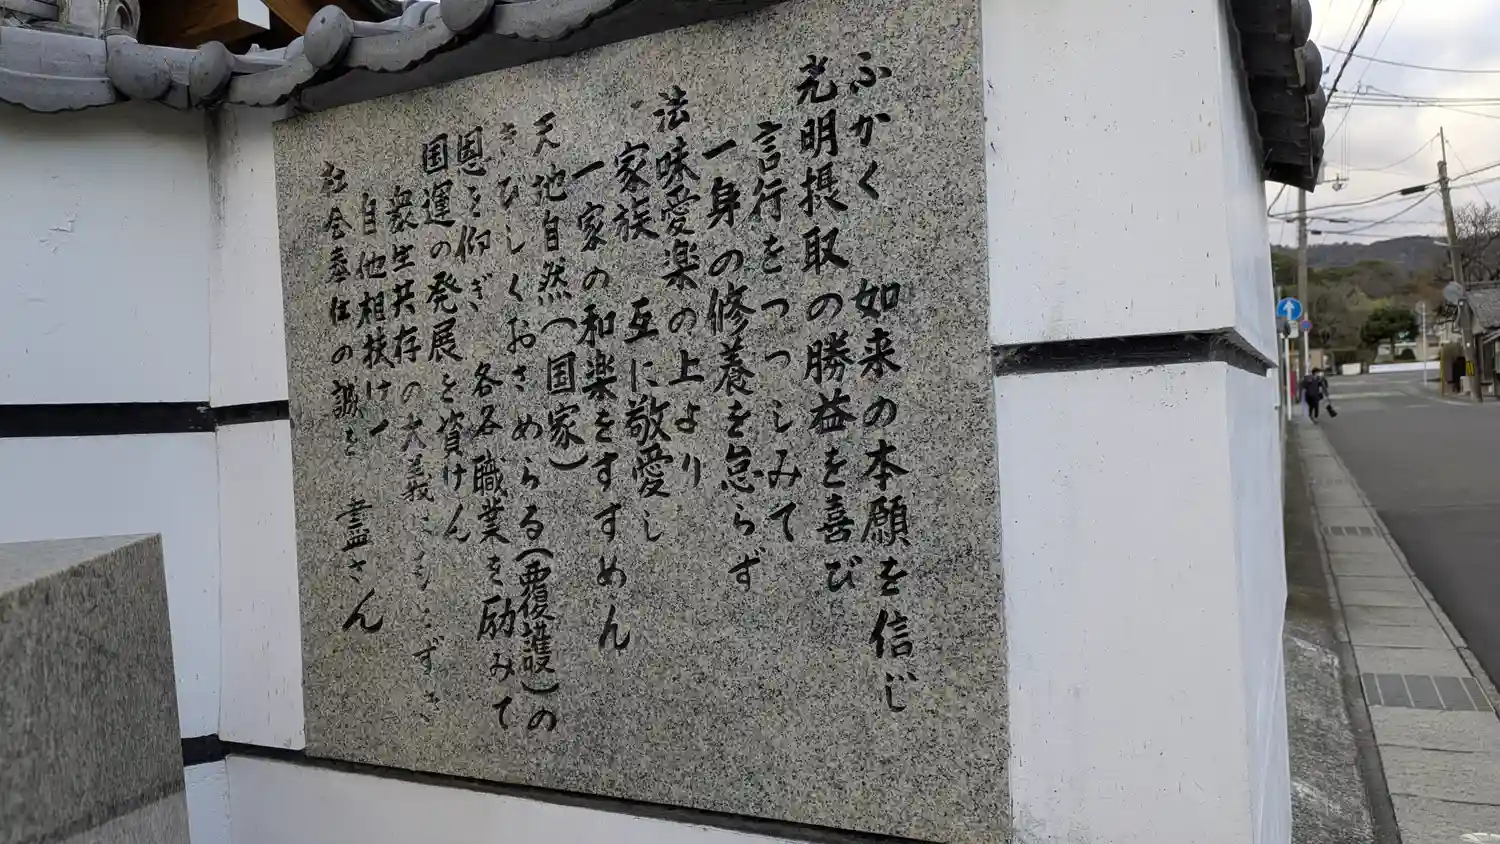 ふかく 如来の本願を信じ
光明摂取の勝益を喜び
言行をつつしみて
一身の修養を怠らず
法味愛楽の上より
家族 互に敬愛し
一家の和楽をすすめん
天地自然(国家)
きびしくおさめらる(覆護)の
恩を仰ぎ 各各職業を励みて
国運の発展を資けん
衆生共存の大義にもとづき
自他相扶けて
社会奉仕の誠を 尽さん